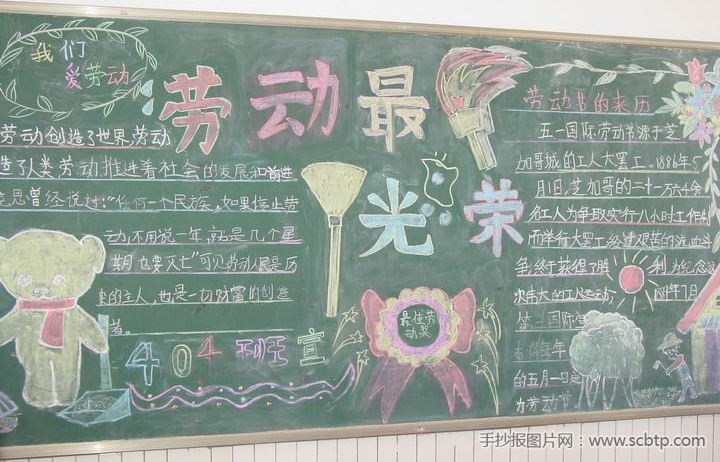 我们
爱劳动
劳动最
光荣
劳动创造了世界,劳动
造了人类劳动推进着社会的发展和前进
克思曾经说过:"任何一个民族,如果停止劳
动,不用说一年,就是几个星
期也要灭亡"可见劳动人民是历
史的主人,也是一切财富的创造
者。
404班宣
最佳劳
动奖
劳动节的来历
五一国际劳动节源于芝
加哥城的工人大罢工。1886年5
月1日,芝加哥的二十一万六千余
名工人为争取实行八小时工作制
而举行大罢工经过艰苦的流血斗
争,终于获得了胜利为纪念这
次伟大的工人运动
年7月
第二国际宣
每年
的五月一日
为劳动节
手抄报图片网:www.scbtp.com